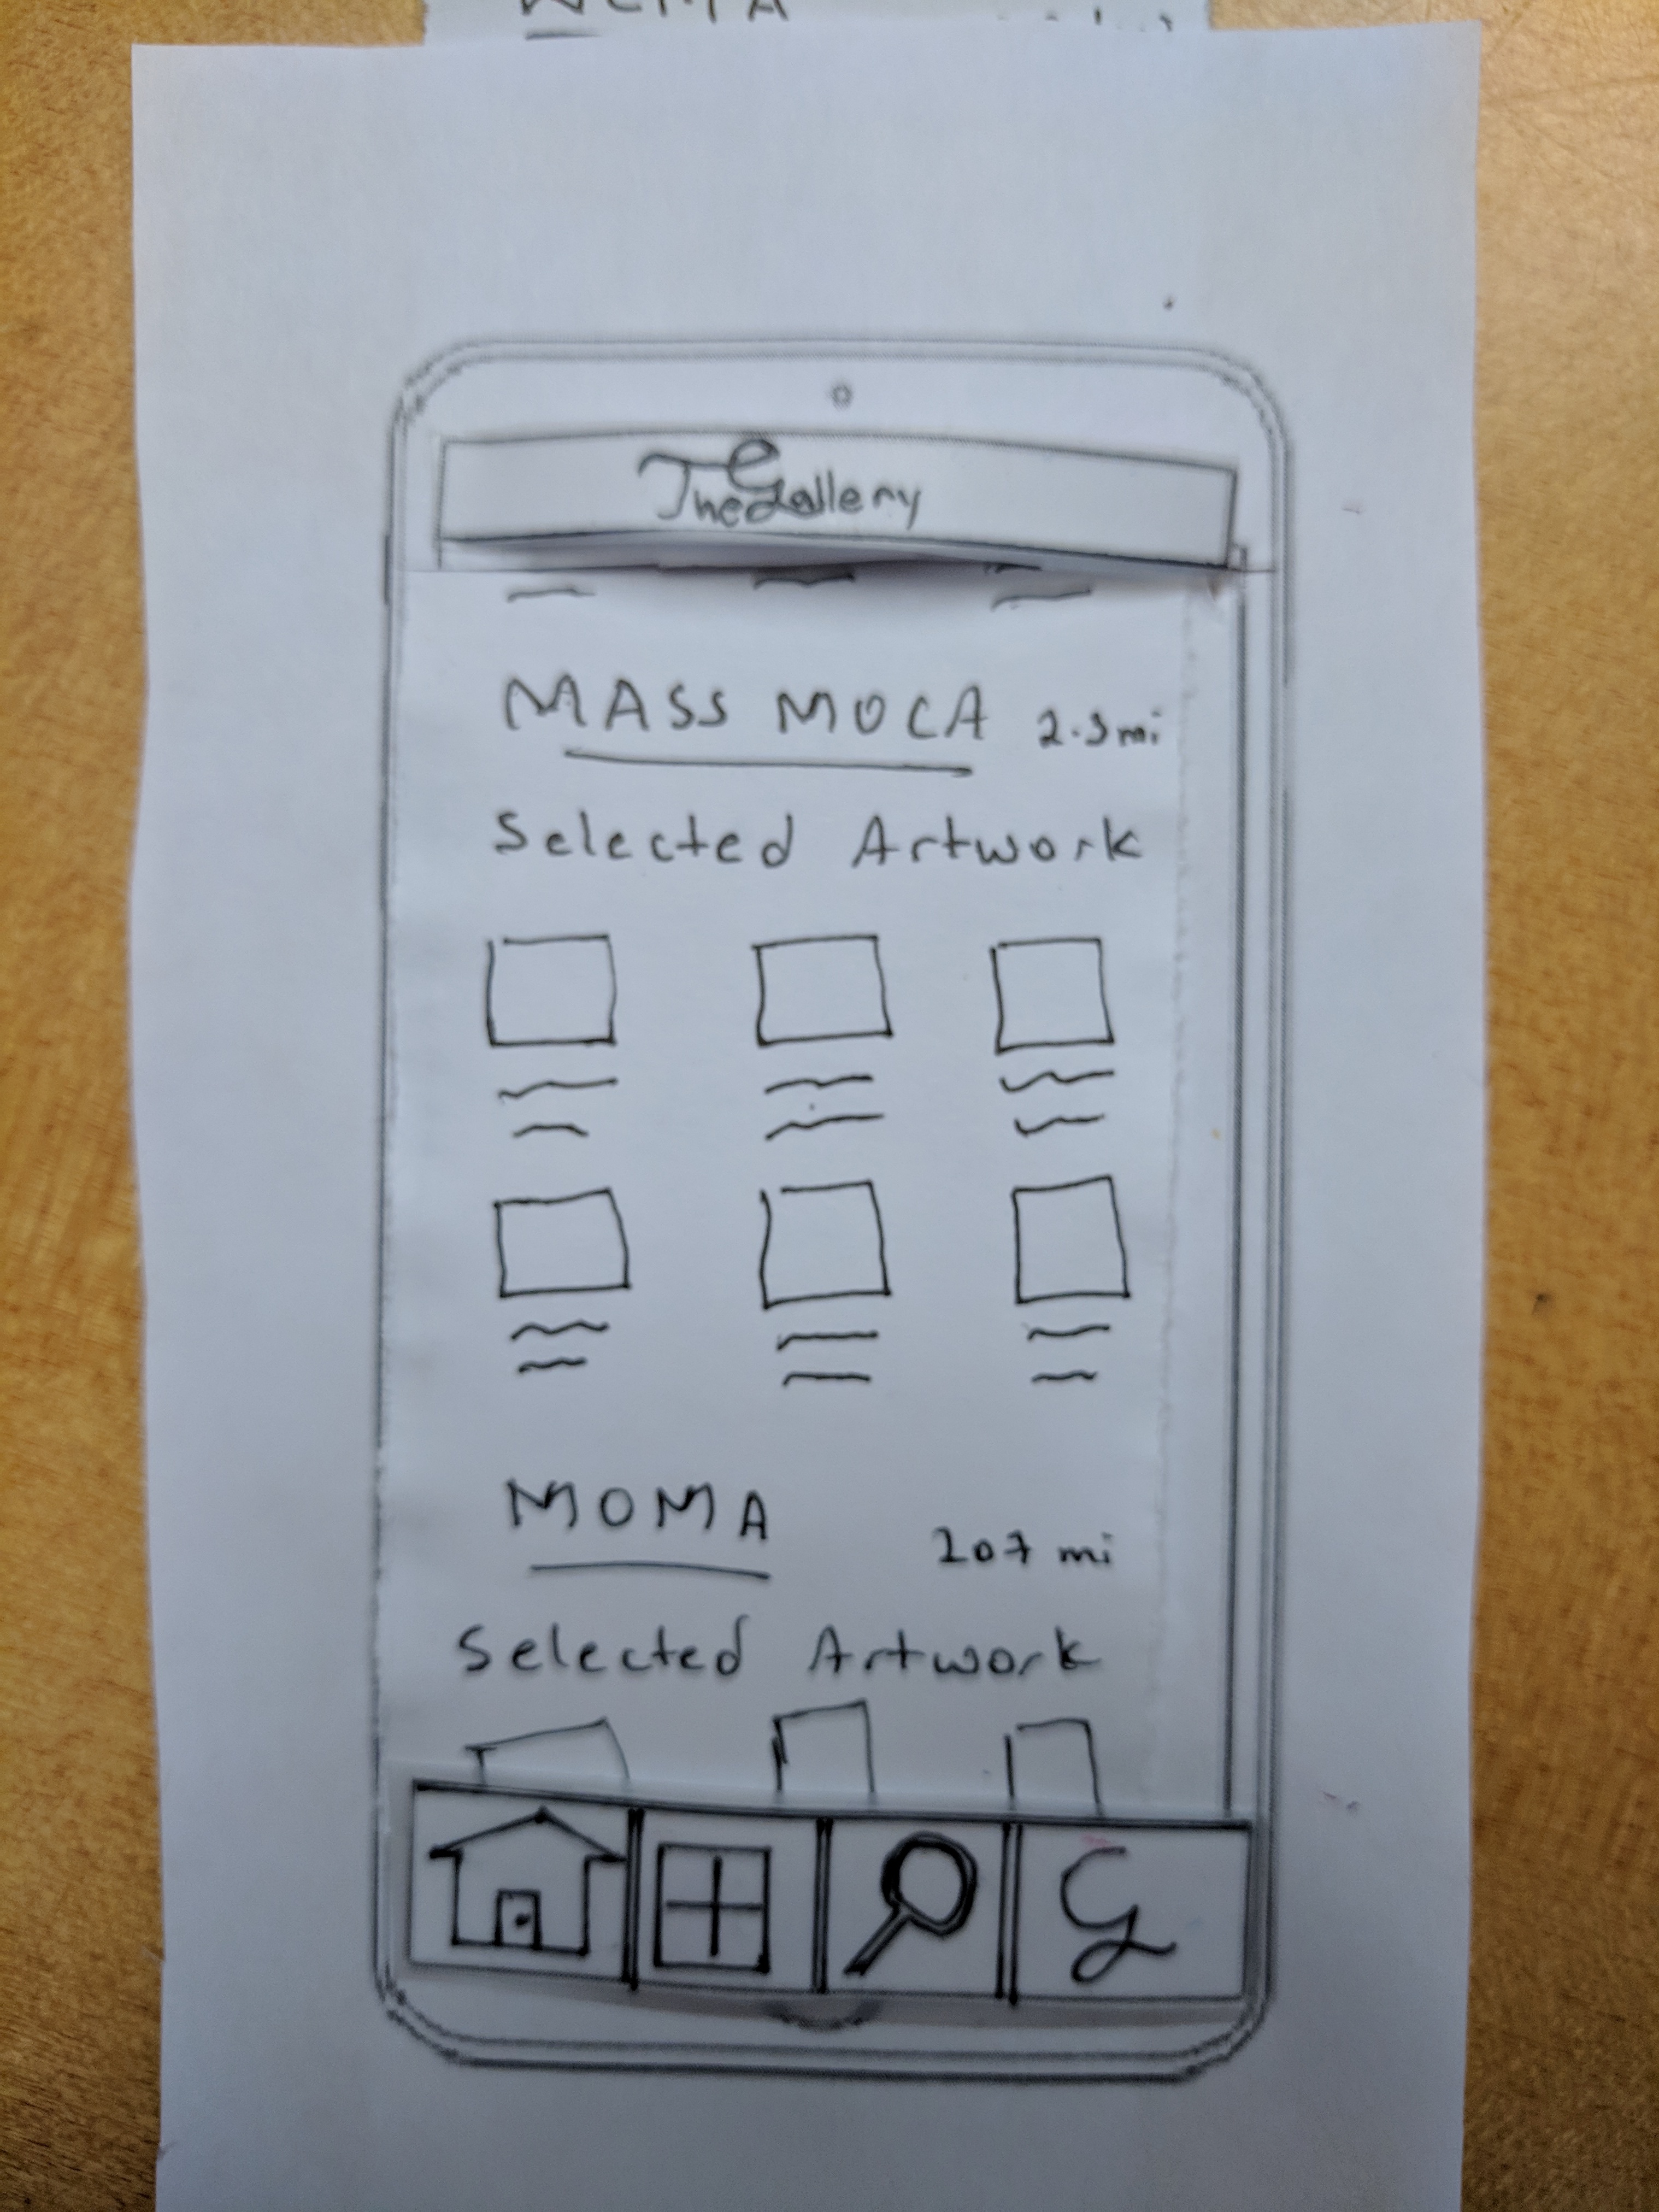 WCMA
The Gallery
MASS MOCA 2.3mi
Selected Artwork
MOMA 207 mi
Selected Artwork
G